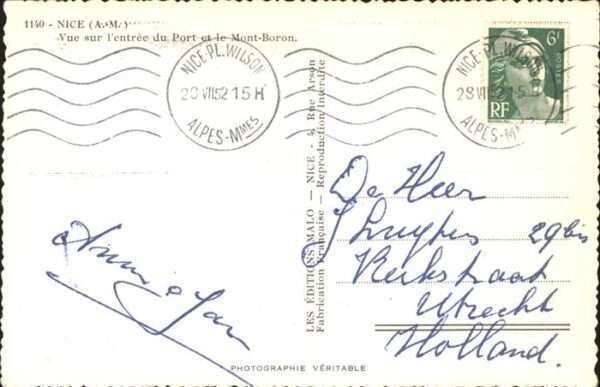 1140 - NICE (A.-M.)
Vue sur l'entrée du Port et le Mont-Boron.
NICE-PL. WILSON
28 VII 52 15 H
ALPES-MMES
NICE-PL. WILSON
28 VII 52 15
ALPES-M
6F
POSTES
RF
LES ÉDITIONS MALO — NICE - 4, Rue Arson
Fabrication Française - Reproduction Interdite
De Heer
29 bis
Kerkstraat
Utrecht
Holland.
PHOTOGRAPHIE VÉRITABLE